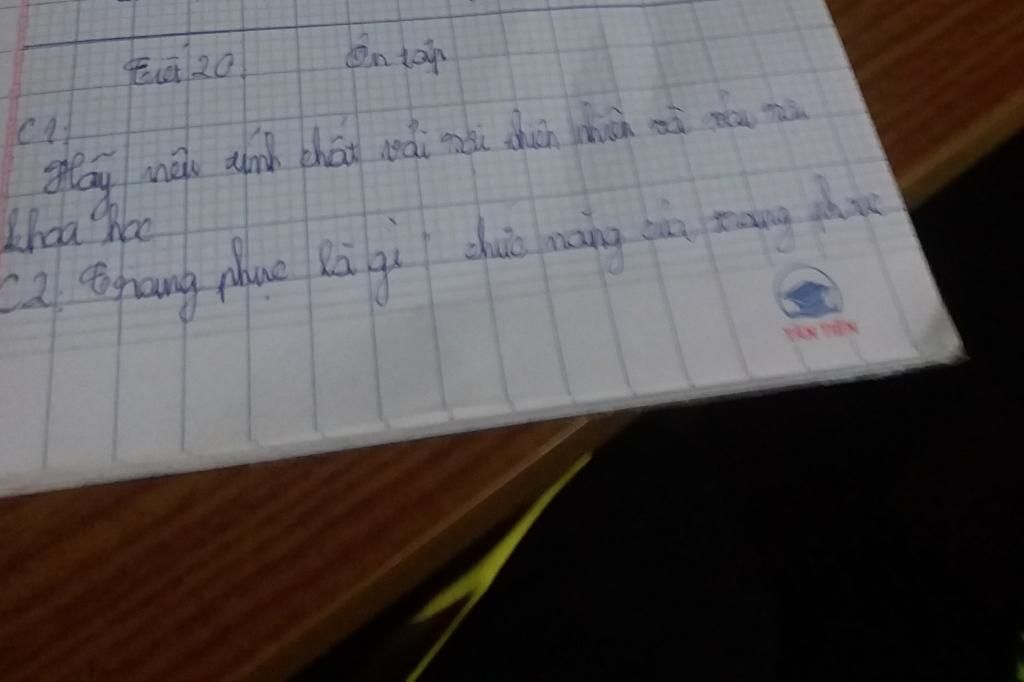 Tiết 20 Ôn tập
C1.
Hãy nêu tính chất vải sợi thiên nhiên và vải sợi
khoa học
C2. Trang phục là gì chức năng của trang phục